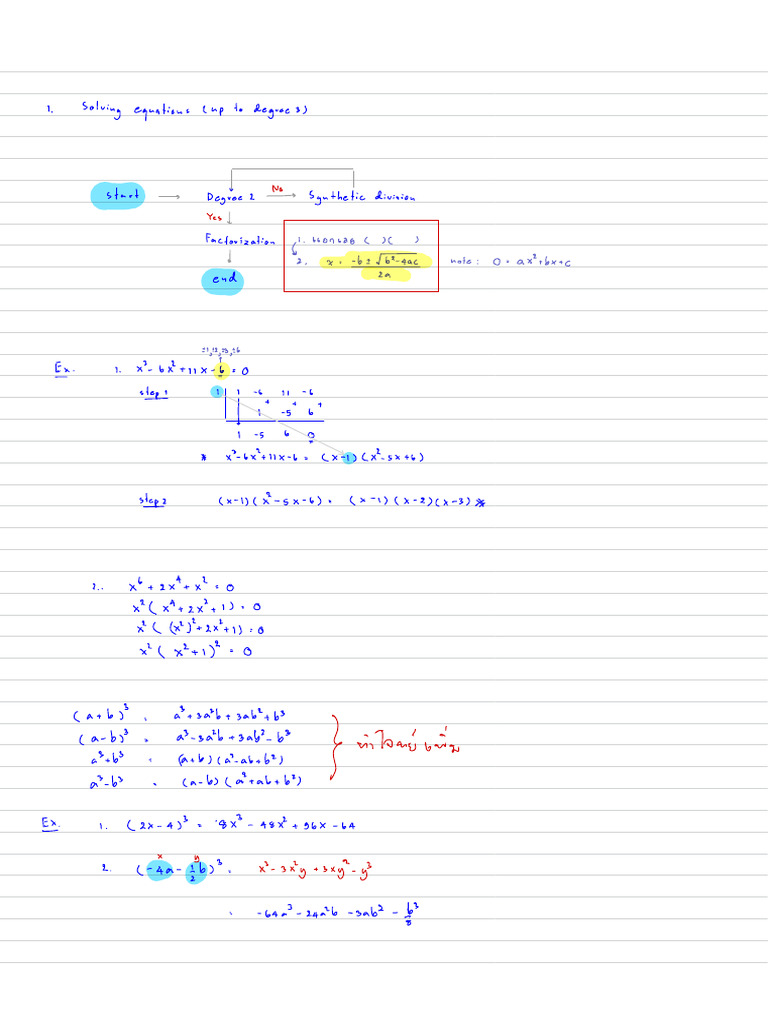 1. Solving equations (up to degree 3)
start → Degree 2 No → Synthetic division
Yes
Factorization
1. ( )( )
2. x = -b ± √b²-4ac / 2a
note: 0 = ax²+bx+c
end
±1,±2,±3,±6
Ex. 1. x³-6x²+11x-6 = 0
step 1
1 | 1 -6 11 -6
+ + +
1 -5 6
1 -5 6 0
* x³-6x²+11x-6 = (x-1)(x²-5x+6)
step 2 (x-1)(x²-5x-6) = (x-1)(x-2)(x-3) *
2. x⁶+2x⁴+x² = 0
x²(x⁴+2x²+1) = 0
x²((x²)²+2x²+1) = 0
x²(x²+1)² = 0
(a+b)³ = a³+3a²b+3ab²+b³
(a-b)³ = a³-3a²b+3ab²-b³
a³+b³ = (a+b)(a²-ab+b²)
a³-b³ = (a-b)(a²+ab+b²)
Ex. 1. (2x-4)³ = 8x³-48x²+96x-64
x y
2. (-4a-½b)³ = x³-3x²y+3xy²-y³
= -64a³-24a²b-3ab²-b³/8